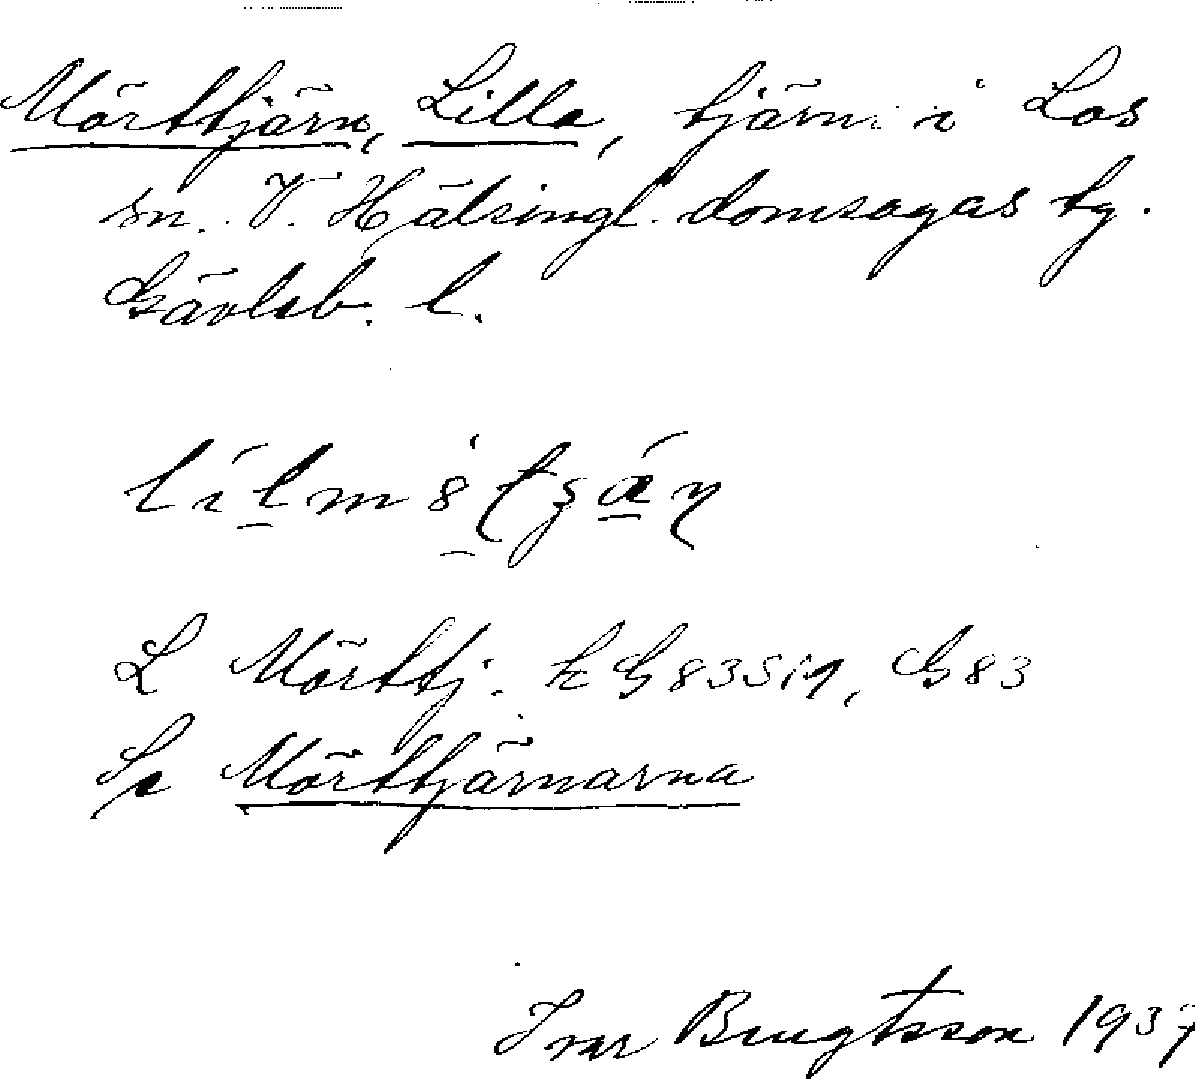 Mörttjärn, Lilla, tjärn i Los
sn. V. Hälsingl. domsagas tg.
Gävleb. l.
L Mörttj. k G83SV9, G83
Se Mörttjärnarna
Ivar Bengtsson 1937